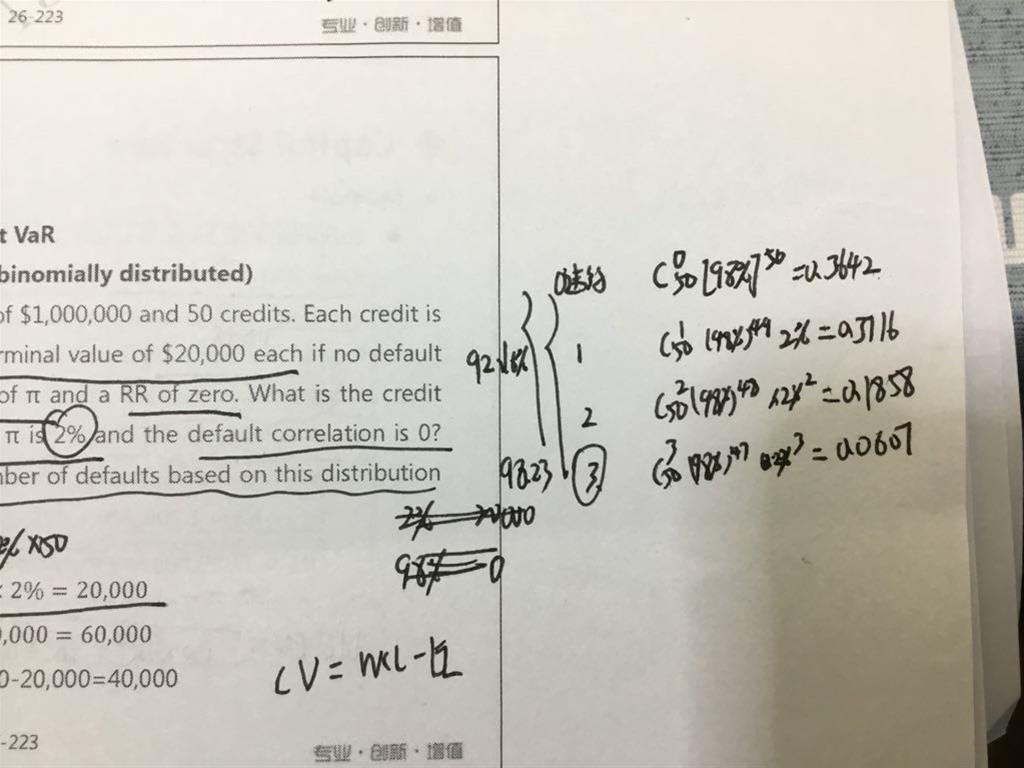 26-223
专业·创新·增值
t VaR
binomially distributed)
of $1,000,000 and 50 credits. Each credit is
rminal value of $20,000 each if no default
of π and a RR of zero. What is the credit
π is 2% and the default correlation is 0?
ber of defaults based on this distribution
% x50
x 2% = 20,000
,000 = 60,000
0-20,000=40,000
-223
专业·创新·增值
C 0 50 [98%]^50 = 0.3642
1 C 1 50 (98%)^49 2% = 0.3716
2 C 2 50 (98%)^48 x2%^2 = 0.1858
98.23 3 C 3 50 98%^47 2%^3 = 0.0607
2% 20000
98% 0
CV = WCL - EL